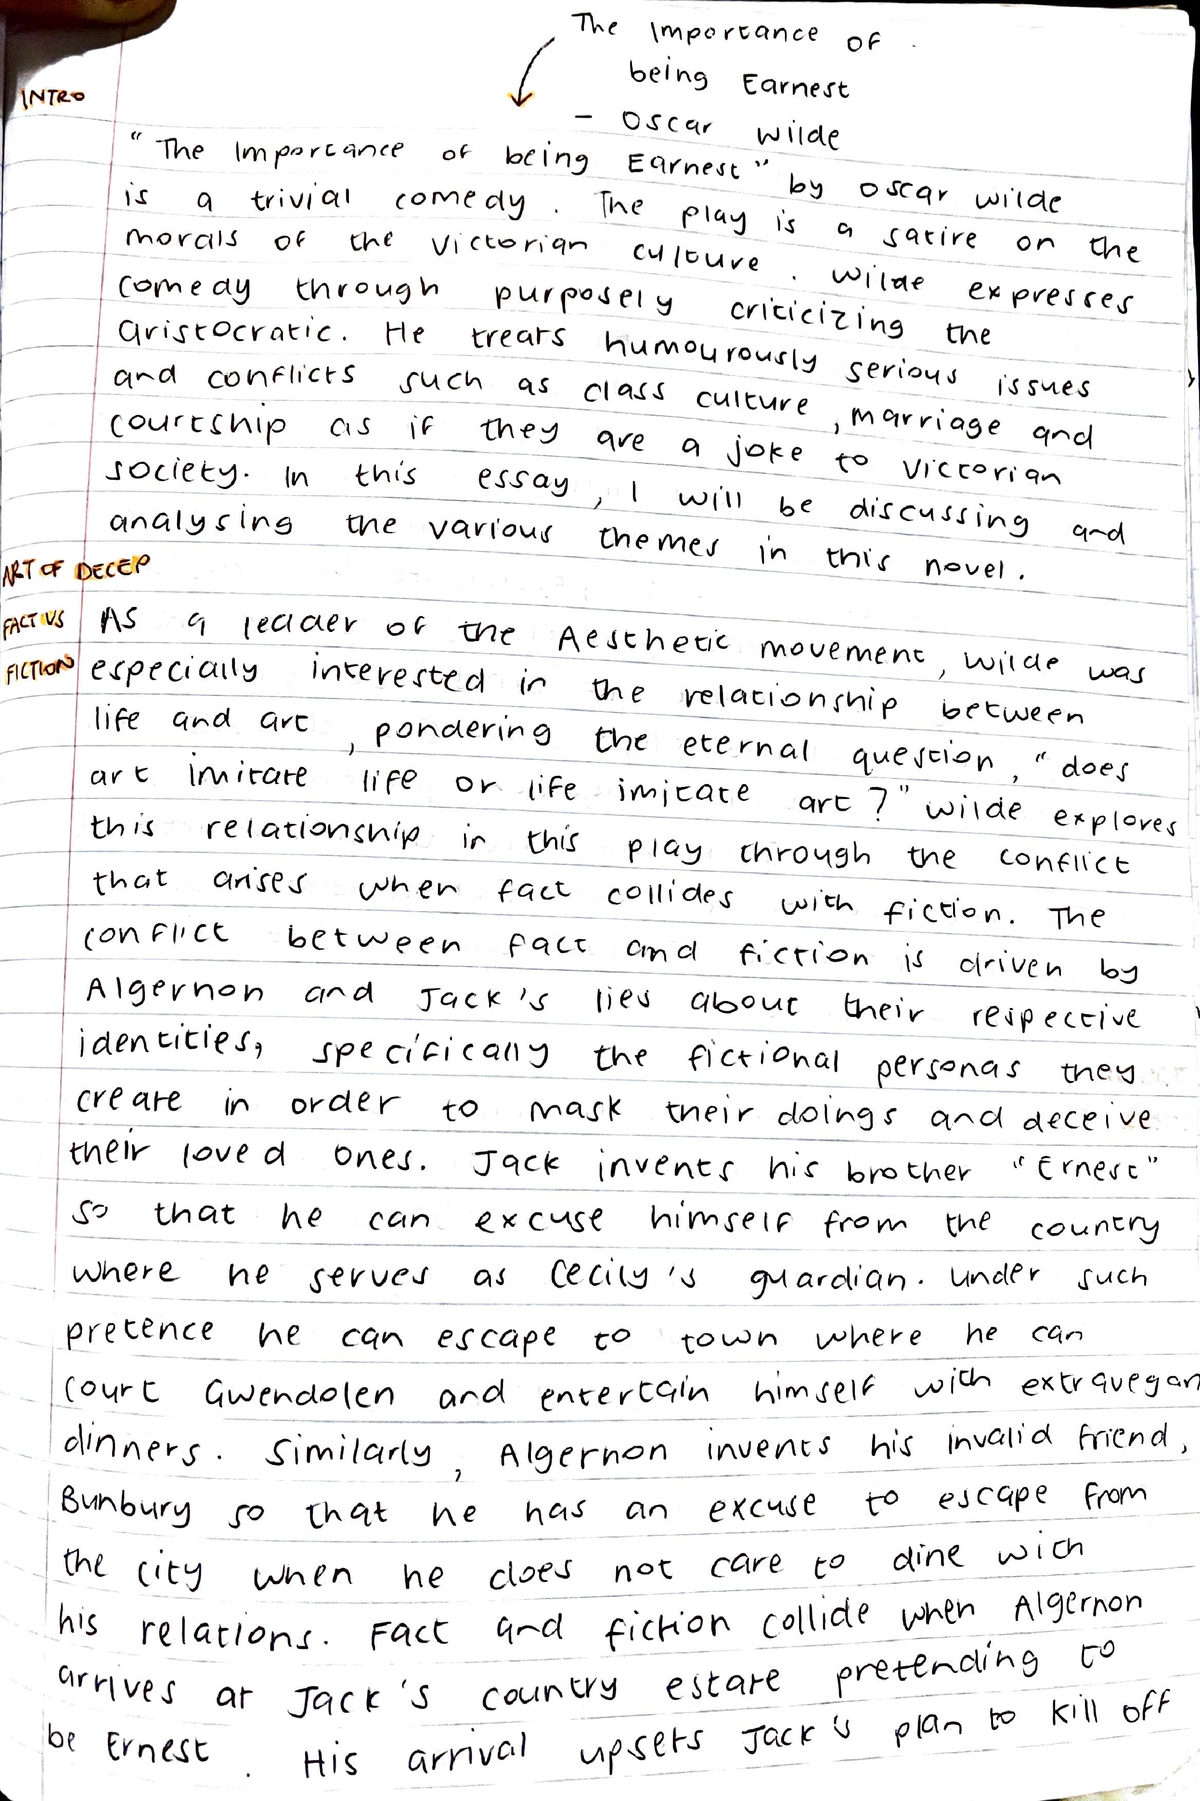 The Importance of
being Earnest
- Oscar Wilde
INTRO
"The Importance of being Earnest" by Oscar Wilde
is a trivial comedy. The play is a satire on the
morals of the Victorian culture. Wilde expresses
comedy through purposely criticizing the
aristocratic. He treats humourously serious issues
and conflicts such as class culture, marriage and
courtship as if they are a joke to Victorian
society. In this essay, I will be discussing and
analysing the various themes in this novel.
ART OF DECEP
FACT VS
FICTION
As a leader of the Aesthetic movement, Wilde was
especially interested in the relationship between
life and art, pondering the eternal question, "does
art imitate life or life imitate art?" Wilde explores
this relationship in this play through the conflict
that arises when fact collides with fiction. The
conflict between fact and fiction is driven by
Algernon and Jack's lies about their respective
identities, specifically the fictional personas they
create in order to mask their doings and deceive
their loved ones. Jack invents his brother "Ernest"
so that he can excuse himself from the country
where he serves as Cecily's guardian. Under such
pretence he can escape to town where he can
court Gwendolen and entertain himself with extravegan
dinners. Similarly, Algernon invents his invalid friend,
Bunbury so that he has an excuse to escape from
the city when he does not care to dine with
his relations. Fact and fiction collide when Algernon
arrives at Jack's country estate pretending to
be Ernest. His arrival upsets Jack's plan to kill off